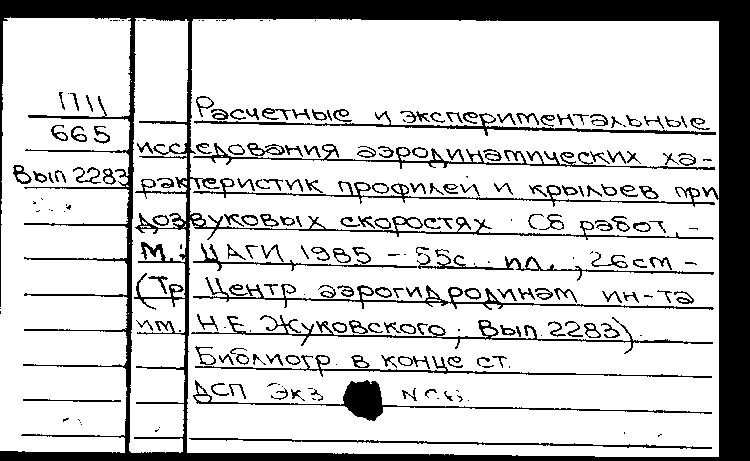 665
Вып 2283
Расчетные и экспериментальные
исследования аэродинамических ха-
рактеристик профилей и крыльев при
дозвуковых скоростях. Сб работ, -
М.: ЦАГИ, 1985 - 55с. ил., ; 26см -
(Тр Центр аэрогидродинам ин-та
им. Н.Е. Жуковского; Вып. 2283).
Библиогр в конце ст.
ДСП Экз